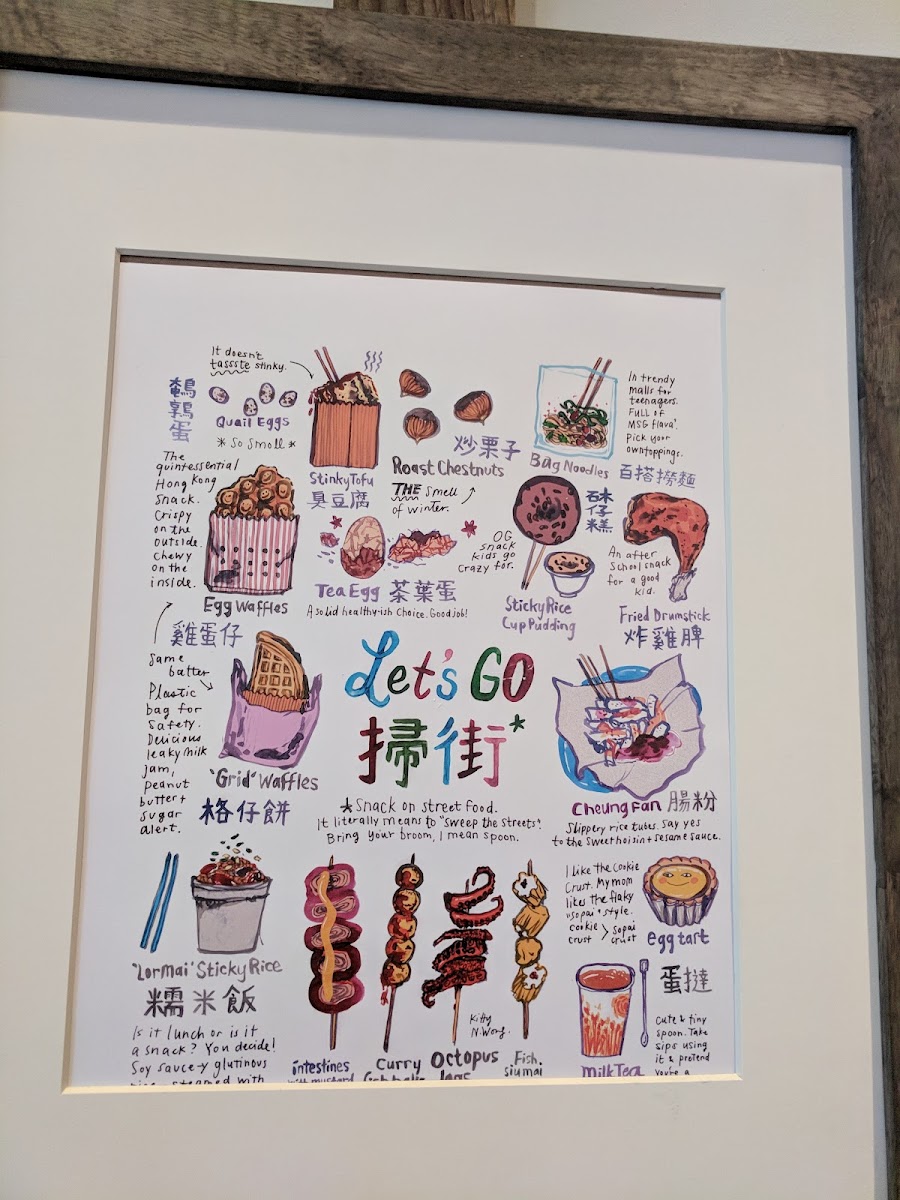 It doesn't
tassste stinky.
鵪鶉蛋
Quail Eggs
* So Small *
Stinky Tofu
臭豆腐
炒栗子
Roast Chestnuts
THE smell
of winter.
Bag Noodles 百搭撈麵
In trendy
malls for
teenagers.
FULL OF
MSG flava'.
Pick your
own toppings.
The
quintessential
Hong Kong
snack.
Crispy
on the
outside.
Chewy
on the
inside.
Egg Waffles
雞蛋仔
Tea Egg 茶葉蛋
A solid healthy-ish choice. Good job!
OG
snack
kids go
crazy for.
砵仔糕
Sticky Rice
Cup Pudding
An after
school snack
for a good
kid.
Fried Drumstick
炸雞髀
Same
batter
Plastic
bag for
safety.
Delicious
leaky milk
jam,
peanut
butter +
sugar
alert.
"Grid" Waffles
格仔餅
Let's GO
掃街*
*Snack on street food.
It literally means to "sweep the streets".
Bring your broom, I mean spoon.
Cheung Fan 腸粉
Slippery rice tubes. Say yes
to the sweet hoisin + sesame sauce.
"Lor mai" Sticky Rice
糯米飯
Is it lunch or is it
a snack? You decide!
Soy sauce-y glutinous
rice steamed with
intestines
with mustard
Curry
fishballs
Octopus
legs
Fish
siu mai
Kitty
N. Wong.
I like the cookie
crust. My mom
likes the flaky
"sopai" style.
cookie crust > sopai crust
egg tart
蛋撻
Milk Tea
Cute & tiny
spoon. Take
sips using
it & pretend
you're a